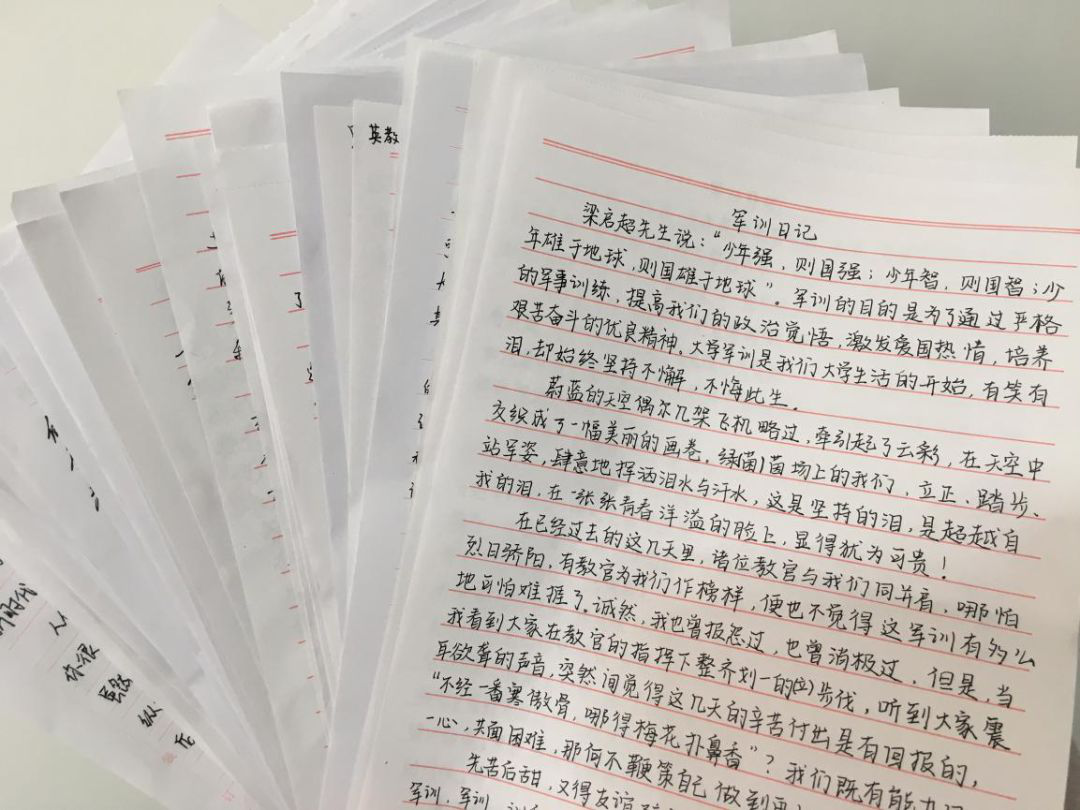 英教
军训日记
梁启超先生说：“少年强，则国强；少年智，则国智；少
年雄于地球，则国雄于地球”。军训的目的是为了通过严格
的军事训练，提高我们的政治觉悟，激发爱国热情，培养
艰苦奋斗的优良精神。大学军训是我们大学生活的开始，有笑有
泪，却始终坚持不懈，不悔此生。
蔚蓝的天空偶尔几架飞机略过，牵引起了云彩，在天空中
交织成了一幅美丽的画卷，绿茵场上的我们，立正、踏步、
站军姿，肆意地挥洒泪水与汗水，这是坚持的泪，是超越自
我的泪，在一张张青春洋溢的脸上，显得犹为可贵！
在已经过去的这几天里，诸位教官与我们同并肩，哪怕
烈日骄阳，有教官为我们作榜样，便也不觉得这军训有多么
地可怕难捱了。诚然，我也曾报怨过，也曾消极过，但是，当
我看到大家在教官的指挥下整齐划一的步伐，听到大家震
耳欲聋的声音，突然间觉得这几天的辛苦付出是有回报的，
“不经一番寒傲骨，哪得梅花扑鼻香”？我们既有能力
一心，共面困难，那何不鞭策自己做到
先苦后甜，又得友谊
军训，军训
人
你很
纵